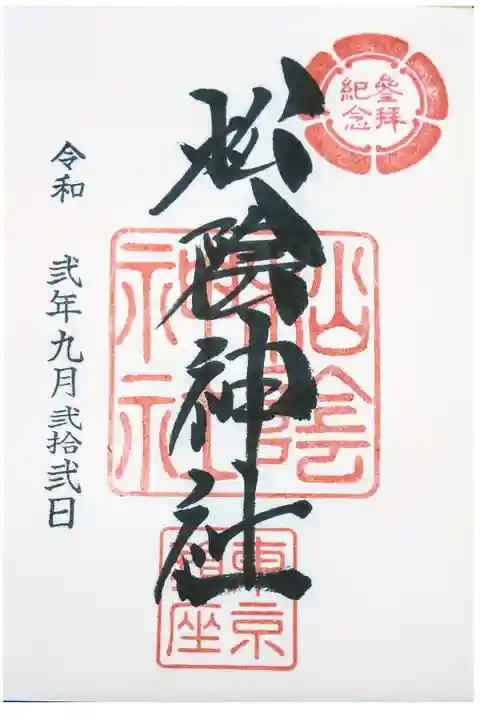 參拝
紀念
松陰神社
松陰
神社
東京
鎮座
令和 弐年九月弐拾弐日